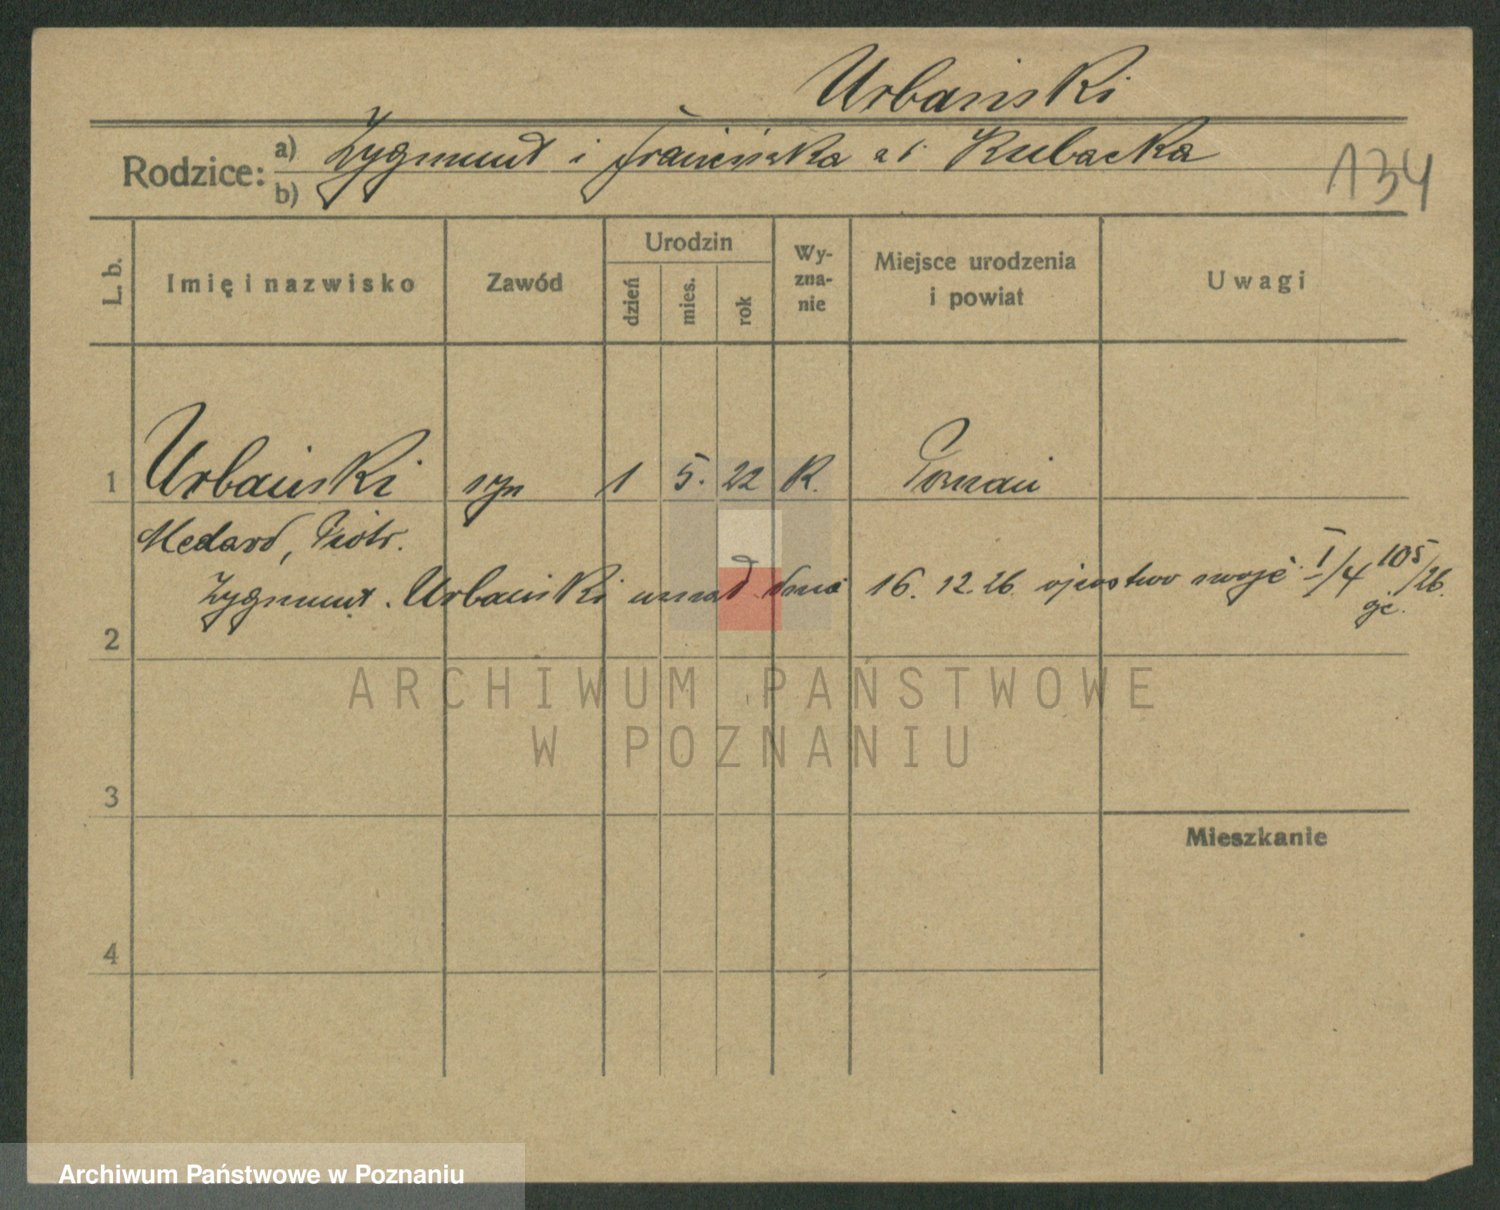 Urbański
Rodzice: a) Zygmunt i Franciszka Kubacka
b)
134
L. b. Imię i nazwisko Zawód Urodzin dzień mies. rok Wy-zna-nie Miejsce urodzenia i powiat Uwagi
1 Urbański syn 1 5. 22 K. Poznań
Medard, Piotr.
Zygmunt. Urbański uznał dnia 16. 12. 26. ojcostwo swoje I/4 105/26.
2
3
Mieszkanie
4
ARCHIWUM PAŃSTWOWE
W POZNANIU
Archiwum Państwowe w Poznaniu